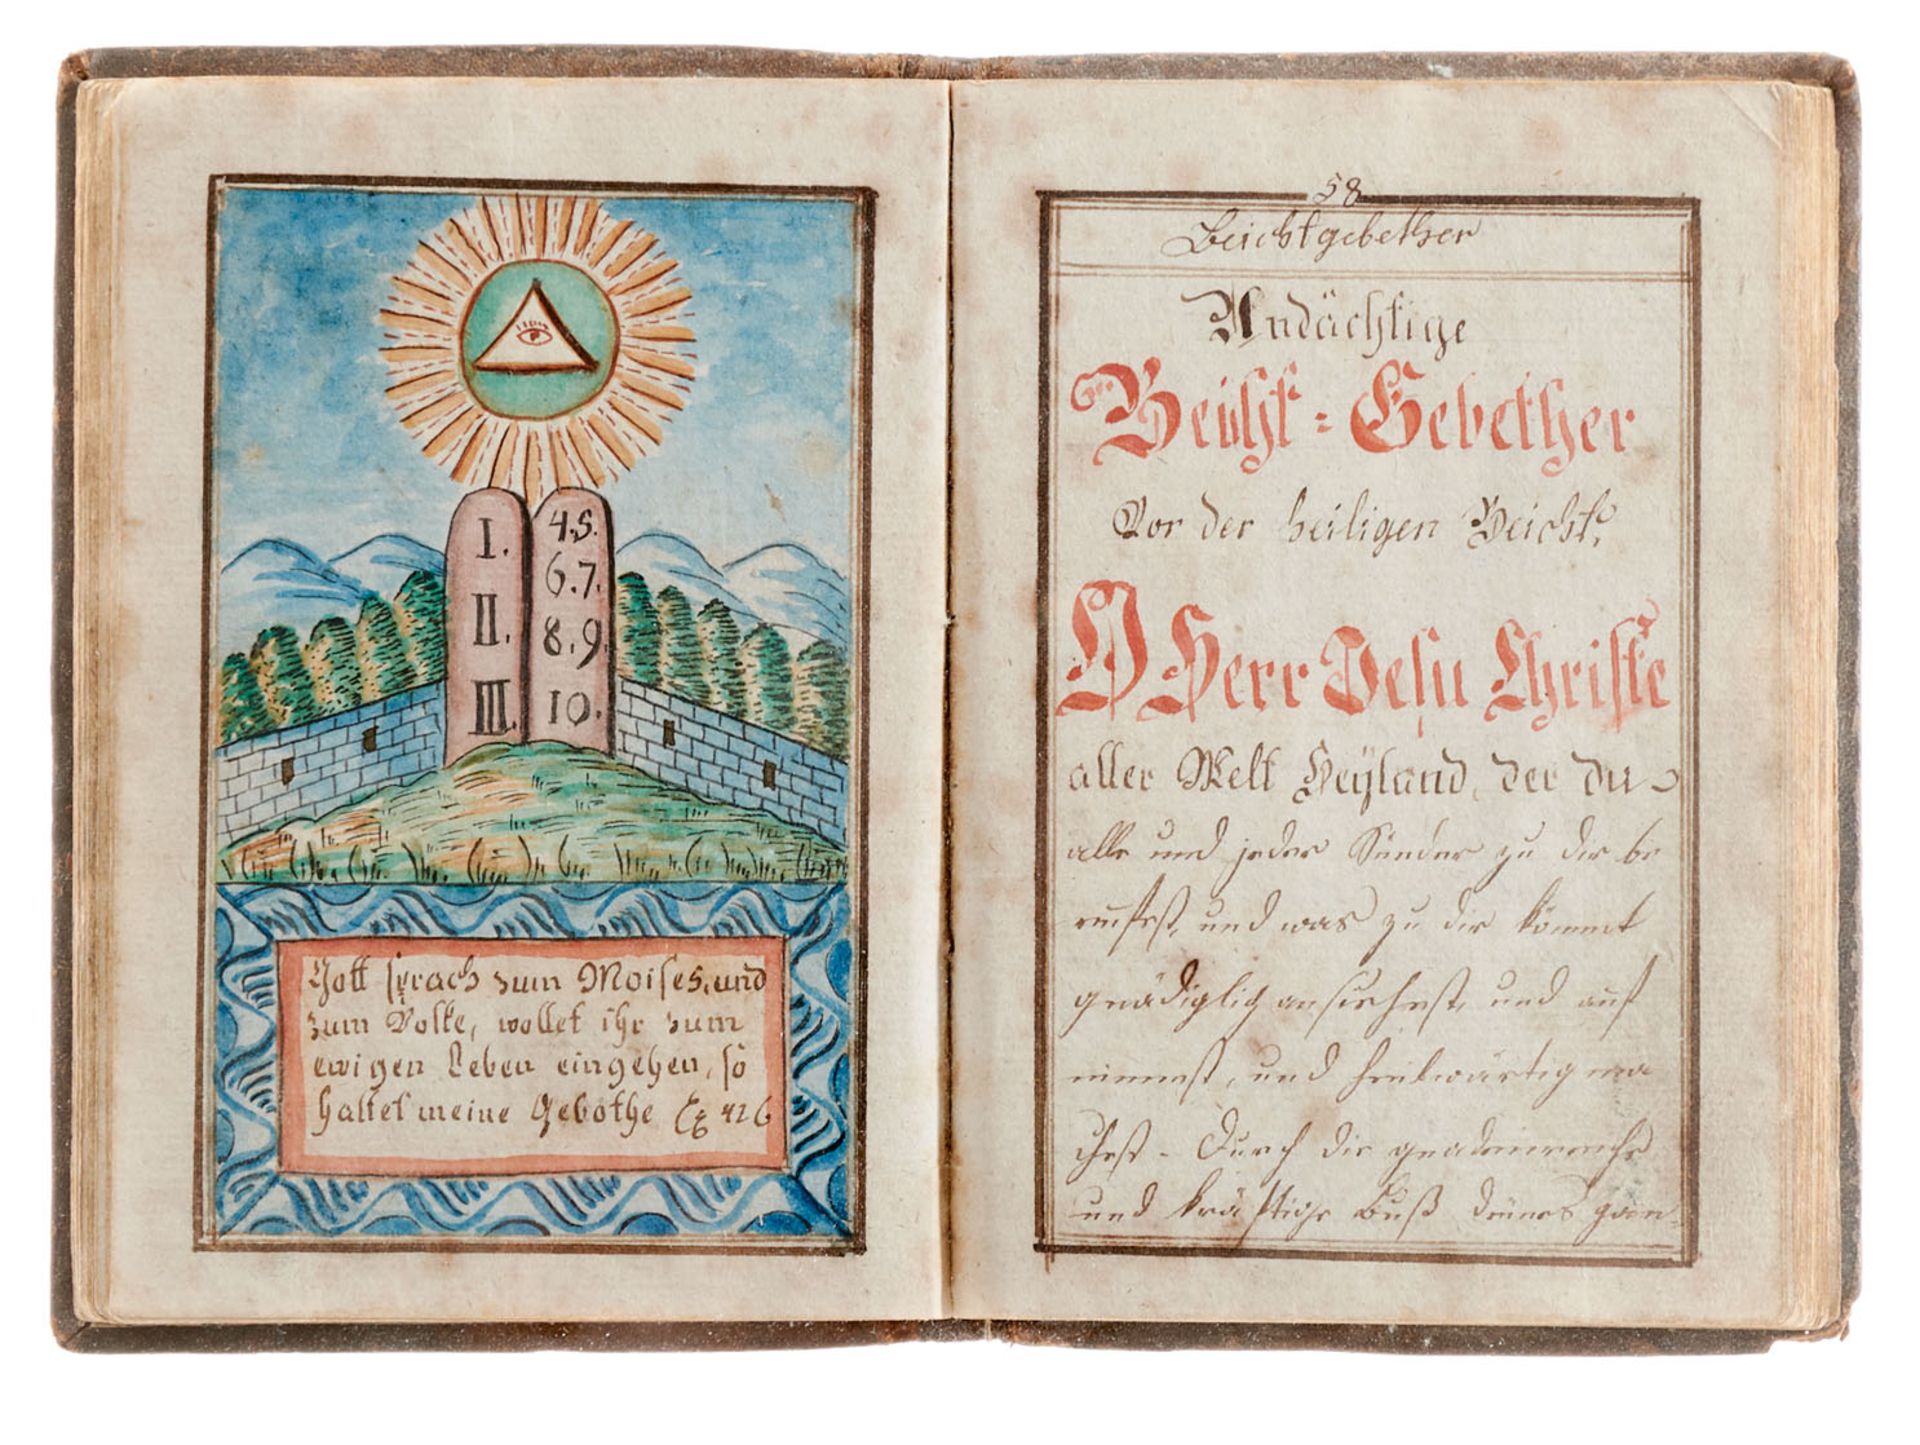 I.
II.
III.
4.5.
6.7.
8.9.
10.
Gott sprach zum Moises, und
zum Volke, wollet ihr zum
ewigen Leben eingehen, so
haltet meine Gebothe Ex 426
58
Beichtgebether
Andächtige
Beicht=Gebether
Vor der heiligen Beicht.
O Herr Jesu Christe
aller Welt Heyland, der du
alle und jeder Sünder zu dir be
ruffest, und was zu dir kömmt
gnädiglich ansiehest, und auf
nimmst, und
chest. Durch die gnadenreiche
und kräftige Buß deines gan-